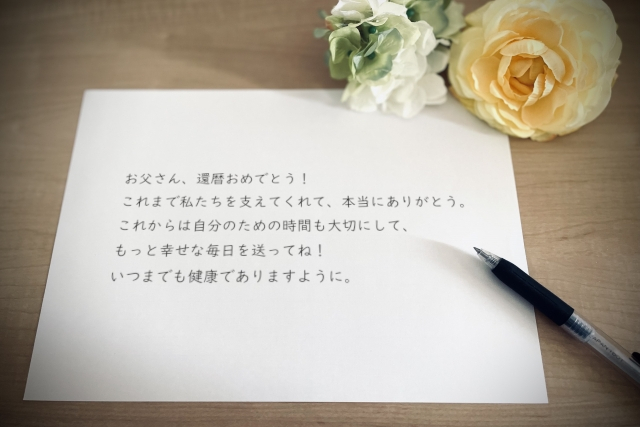 お父さん、還暦おめでとう！
これまで私たちを支えてくれて、本当にありがとう。
これからは自分のための時間も大切にして、
もっと幸せな毎日を送ってね！
いつまでも健康でありますように。